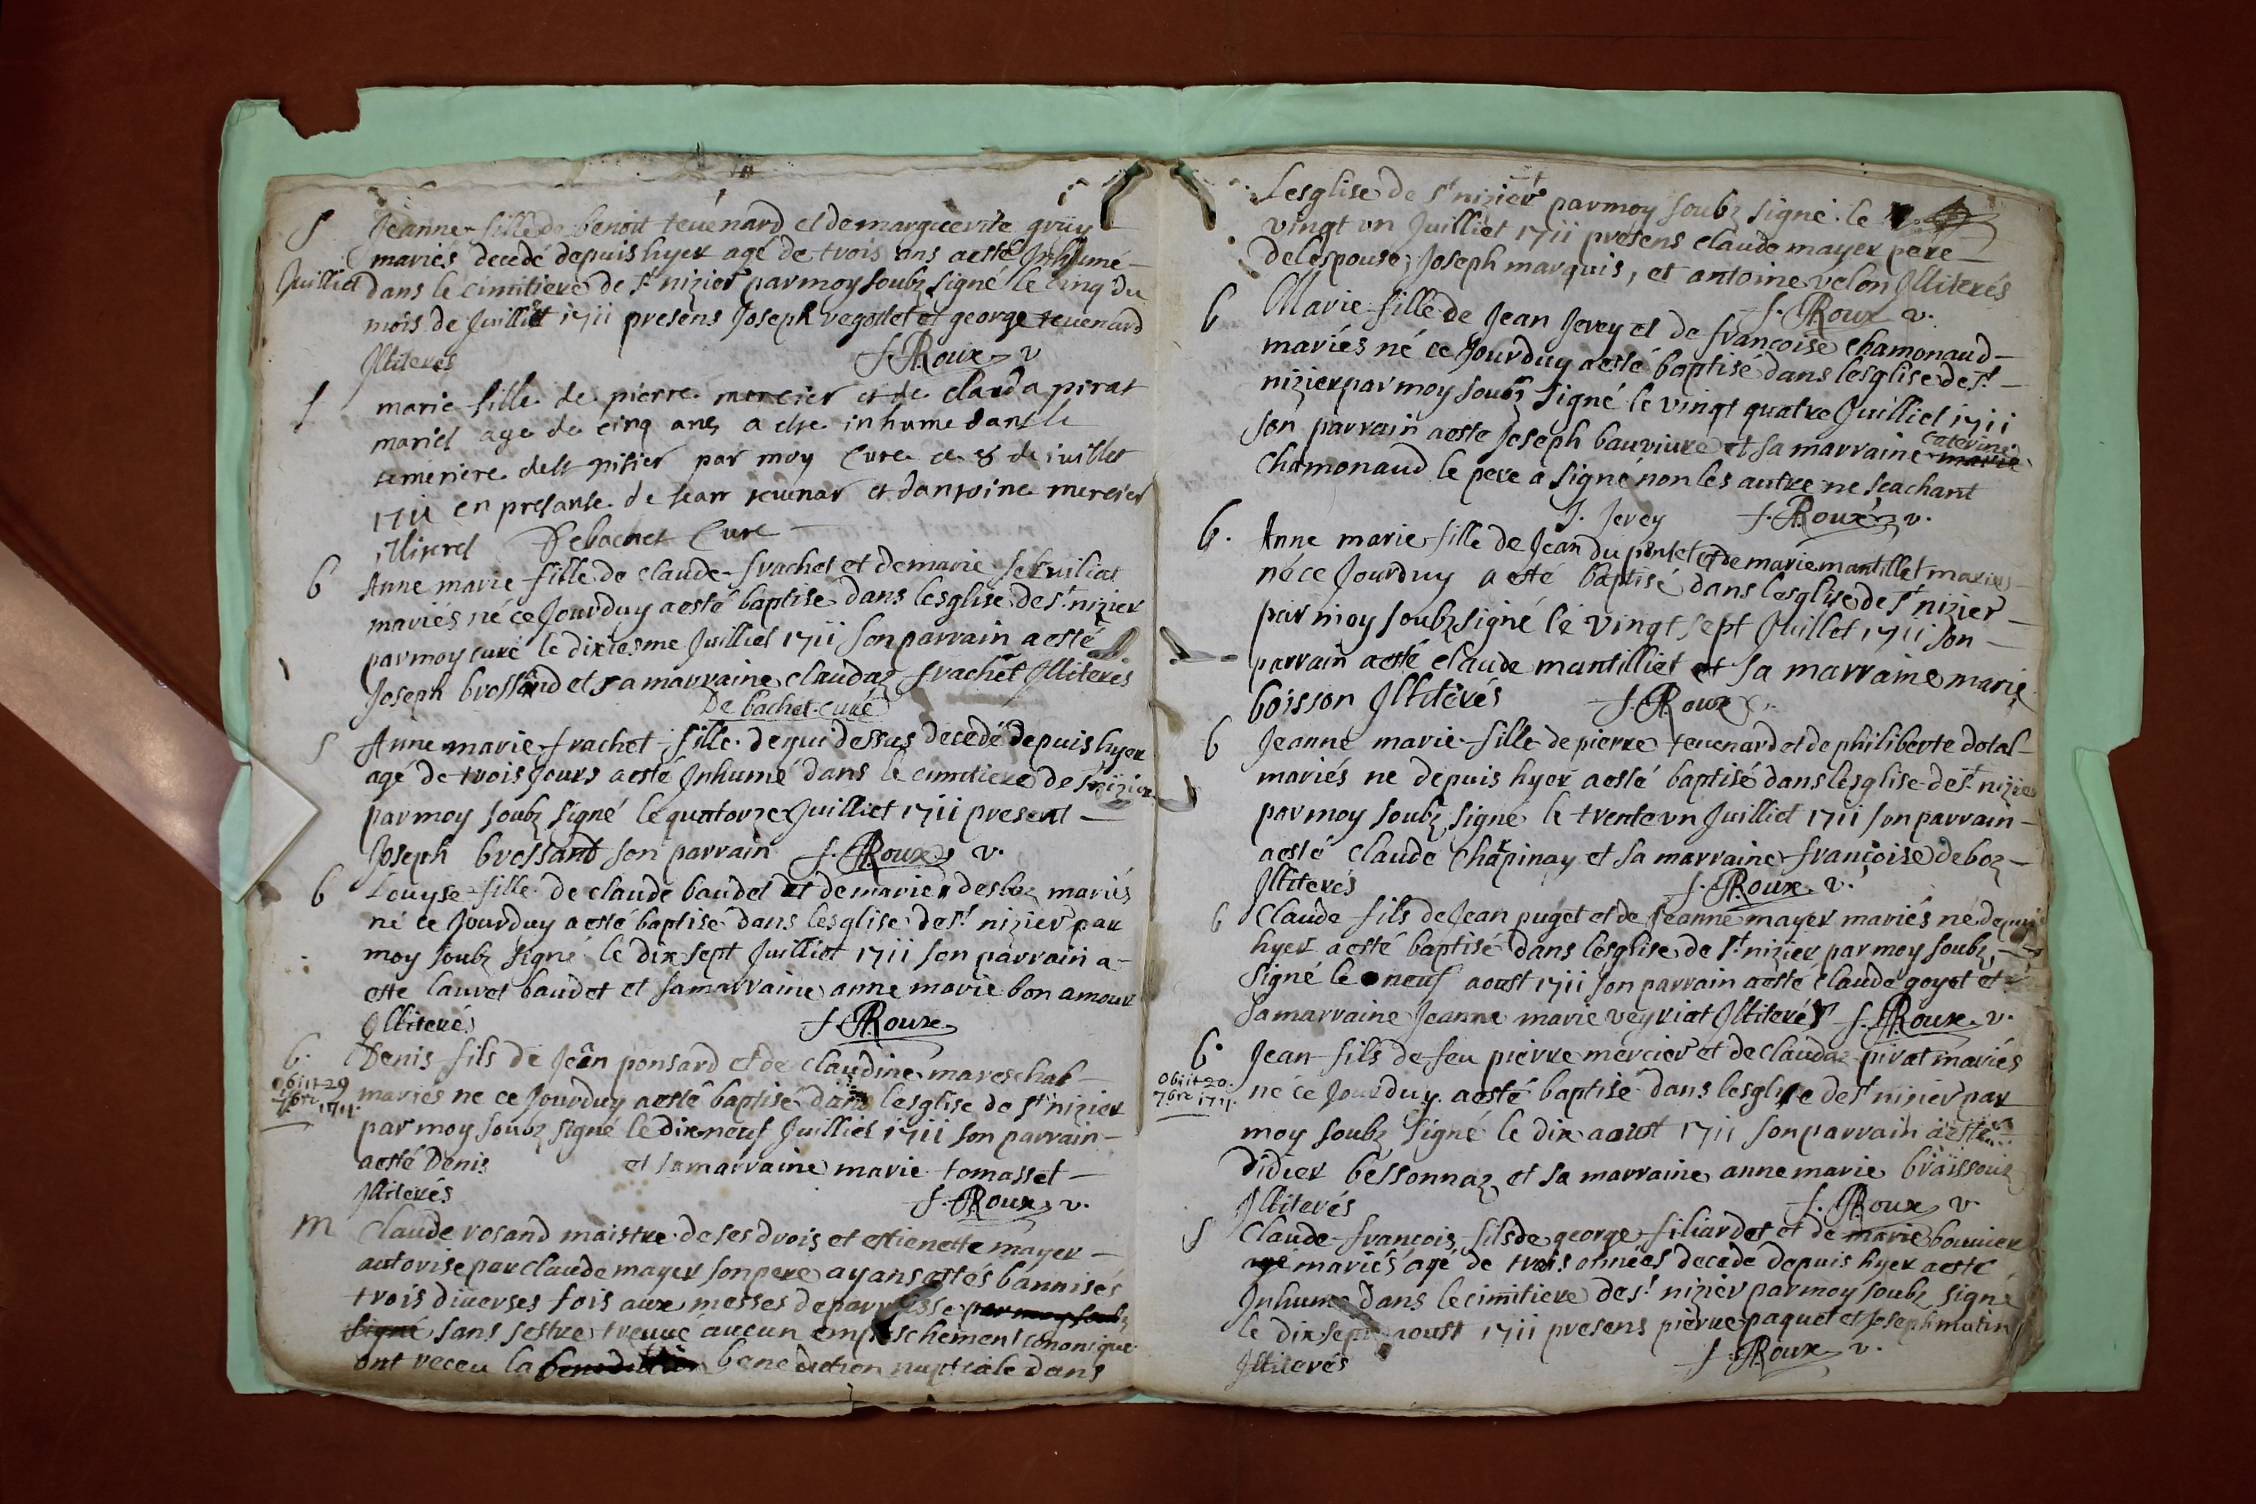 S Jeanne fille de benoit teuenard et de marguerite gruy
mariés decedé depuis hyer agé de trois ans a esté Inhumé
Juilliet dans le cimitiere de St nizier par moy soubz signé le cinq du
mois de Juilliet 1711 presens Joseph vegottet et george teuenard
Illiterés f. Roux v
S marie fille de pierre mercier et de clauda pirat
mariel age de cinq ans a este inhume dans le
semeniere de st nisier par moy Cure ce 8 de iuillet
1711 en presanse de jean teuenar et dantoine mercier
illiterel Debachet Cure
b Anne marie fille de claude frachet et de marie
mariés né ce Jourduy a esté baptise dans lesglise de St nizier
par moy curé le dixiesme Juilliet 1711 son parrain a esté
Joseph brossand et sa marraine claudaz frachet Illiterés
De bachet curé
S Anne marie frachet fille de qui dessus decedé depuis hyer
agé de trois Jours a esté Inhumé dans le cimitiere de St nizier
par moy soubz signé le quatorze Juilliet 1711 present
Joseph brossand son parrain f. Roux v.
b Louyse fille de claude baudet et de marie desboz mariés
né ce Jourduy a esté baptisé dans lesglise de St nizier par
moy soubz signé le dix sept Juilliet 1711 son parrain a
este lauret baudet et sa marraine anne marie bon amour
Illiterés f. Roux
b. Denis fils de Jean ponsard et de claudine mareschal
obiit 29 mariés né ce Jourduy a esté baptisé dans lesglise de St nizier
7bre 1711 par moy soubz signé le dix neuf Juilliet 1711 son parrain
a esté Denis et sa marraine marie tomasset
Illiterés f. Roux v.
M Claude rosand maistre de ses drois et estienette mayer
autorise par claude mayer son pere ayans estés bannisés
trois diuerses fois aux messes de parroisse par moy soubz
signé sans sestre treuué aucun empeschement cononique
ont receu la benediction benediction nuptiale dans
Lesglise de St nizier par moy soubz signé le
vingt un Juilliet 1711 presens claude mayer pere
de lespouse, Joseph marquis, et antoine velon Illiterés
f. Roux v.
b Marie fille de Jean Jerey et de francoise chamonaud
mariés né ce Jourduy a esté baptisé dans lesglise de St
nizier par moy soubz signé le vingt quatre Juilliet 1711
son parrain a esté Joseph bauviure et sa marraine marie caterine
chamonaud le pere a signé non les autre ne scachant
J. Jerey f. Roux v.
b. Anne marie fille de Jean du pontet et de marie mantillet mariés
né ce Jourduy a esté baptisé dans lesglise de St nizier
par moy soubz signé le vingt sept Juillet 1711 son
parrain a esté claude mantilliet et sa marraine marie
boisson Illiterés f. Roux v.
b Jeanne marie fille de pierre teuenard et de philiberte dotal
mariés né depuis hyer a esté baptisé dans lesglise de St nizier
par moy soubz signé le trente un Juilliet 1711 son parrain
a esté claude Charpinay et sa marraine françoise deboz
Illiterés f. Roux v.
b Claude fils de Jean puget et de Jeanne mayer mariés né depuis
hyer a esté baptisé dans lesglise de St nizier par moy soubz
signé le neuf aoust 1711 son parrain a esté claude goyet et
sa marraine Jeanne marie veyriat Illiterés f. Roux v.
b. Jean fils de feu pierre mercier et de claudaz pirat mariés
obiit 20 né ce Jourduy a esté baptisé dans lesglise de St nizier par
7bre 1711 moy soubz signé le dix aoust 1711 son parrain a esté
didier bessonnaz et sa marraine anne marie braissoiz
Illiterés f. Roux v
S Claude françois fils de george filiardet et de marie bouuier
agé mariés agé de trois onnées decedé depuis hyer a esté
Inhumé dans le cimitiere de St nizier par moy soubz signé
le dix sept aoust 1711 presens pierre paquet et Joseph mutin
Illiterés f. Roux v.